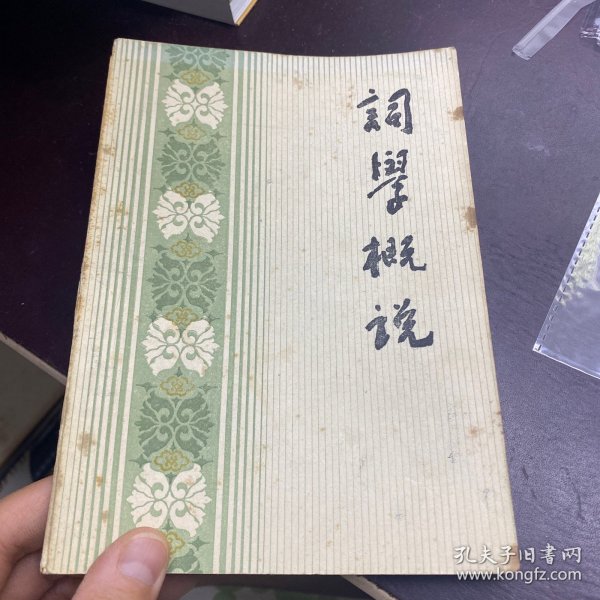 詞學概説
孔夫子旧書网
www.kongfz.com